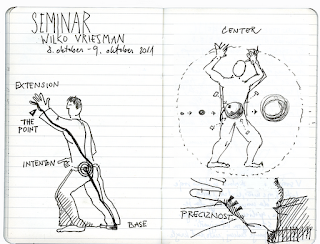 SEMINAR
WILKO VRIESMAN
8. oktober - 9. oktober 2011
EXTENSION
THE POINT
INTENTION
BASE
CENTER
PRECIZNOST